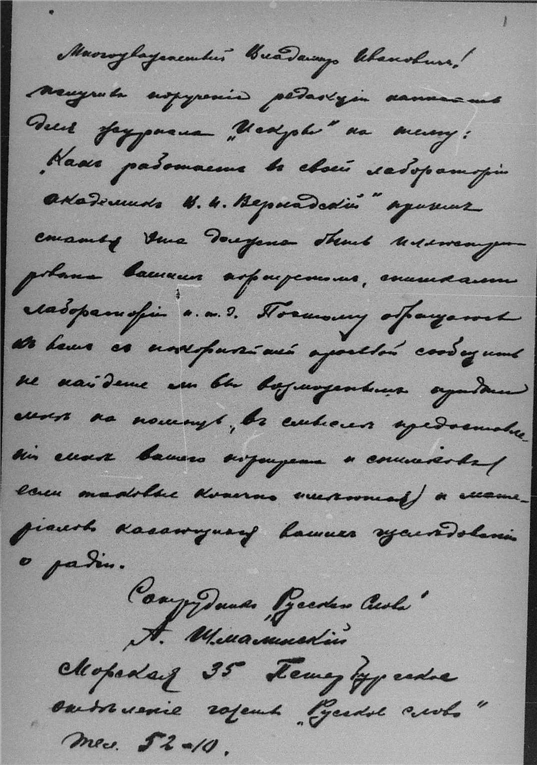 1
Многоуважаемый Владимир Ивановичъ!
получивъ порученіе редакціи написать
для журнала „Искры" на тему:
„Какъ работаетъ въ своей лабораторіи
академикъ В. И. Вернадскій"
статья эта должна быть иллюстри
рована вашимъ портретомъ, снимками
лабораторій и. т. д. Поэтому обращаюсь
къ вамъ съ покорнейшей просьбой сообщить
не найдете ли вы возможнымъ придти
мнѣ на помощь, въ смыслѣ предоставле-
нія мнѣ вашего портрета и снимковъ (
если таковые конечно имѣются) и мате-
ріаловъ касающихся вашихъ изслѣдованій
о радіи.
Сотрудникъ „Русскаго Слова"
А. Шмалинскій
Морская 35 Петербургское
отдѣленіе газеты „Русское слово"
Тел. 52-10.